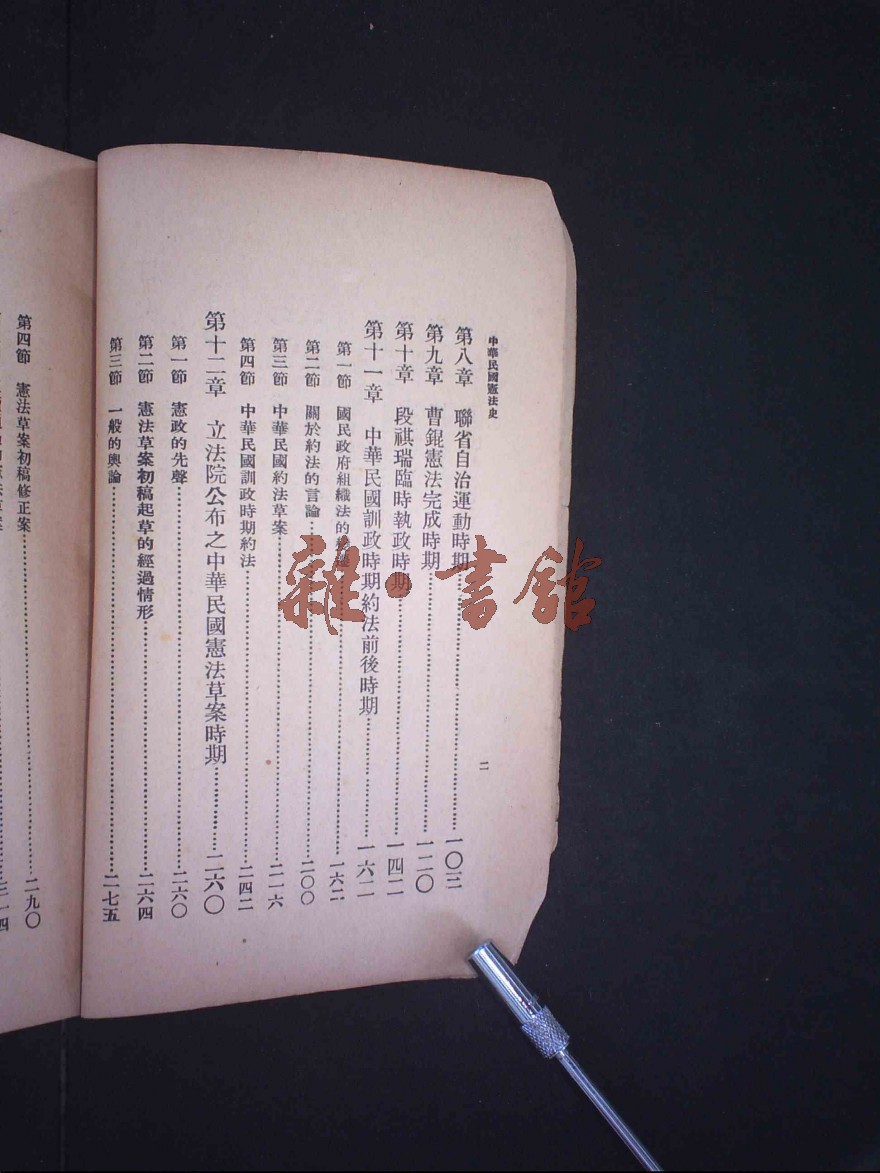 中華民國憲法史
二
第八章 聯省自治運動時期 一〇三
第九章 曹錕憲法完成時期 一二〇
第十章 段祺瑞臨時執政時期 一四二
第十一章 中華民國訓政時期約法前後時期 一六二
第一節 國民政府組織法的 一六二
第二節 關於約法的言論 二〇〇
第三節 中華民國約法草案 二一六
第四節 中華民國訓政時期約法 二四二
第十二章 立法院公布之中華民國憲法草案時期 二六〇
第一節 憲政的先聲 二六〇
第二節 憲法草案初稿起草的經過情形 二六四
第三節 一般的輿論 二七五
第四節 憲法草案初稿修正案 二九〇
三一四
雜·書館